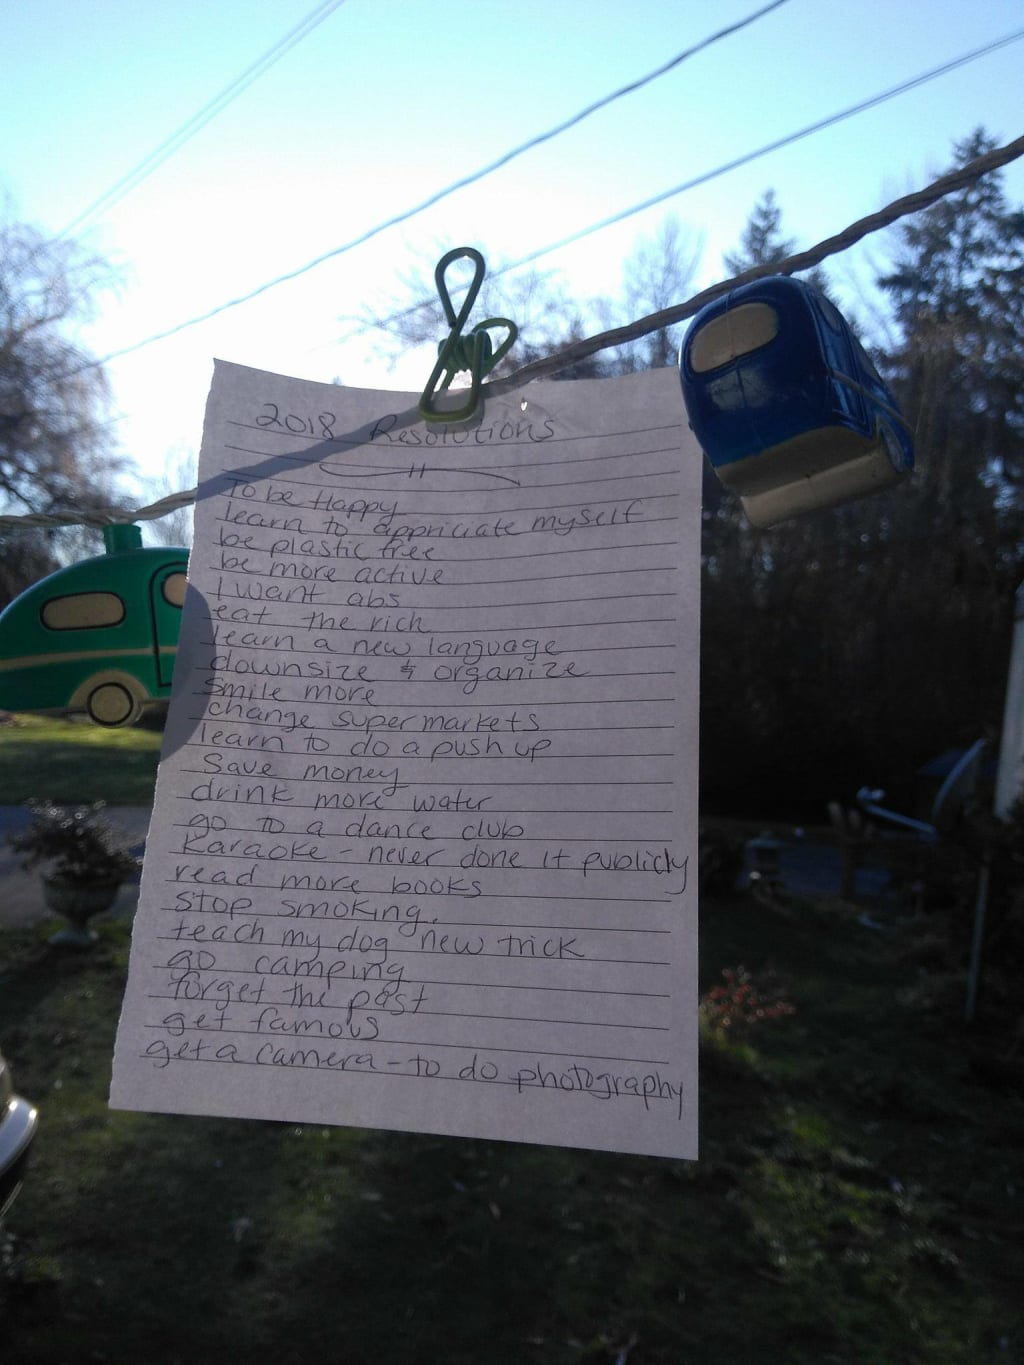 2018 Resolutions
To be Happy
learn to appriciate myself
be plastic free
be more active
I want abs
eat the rich
learn a new language
downsize & organize
smile more
change super markets
learn to do a push up
save money
drink more water
go to a dance club
Karaoke - never done it publicly
read more books
stop smoking.
teach my dog new trick
go camping
forget the past
get famous
get a camera - to do photography